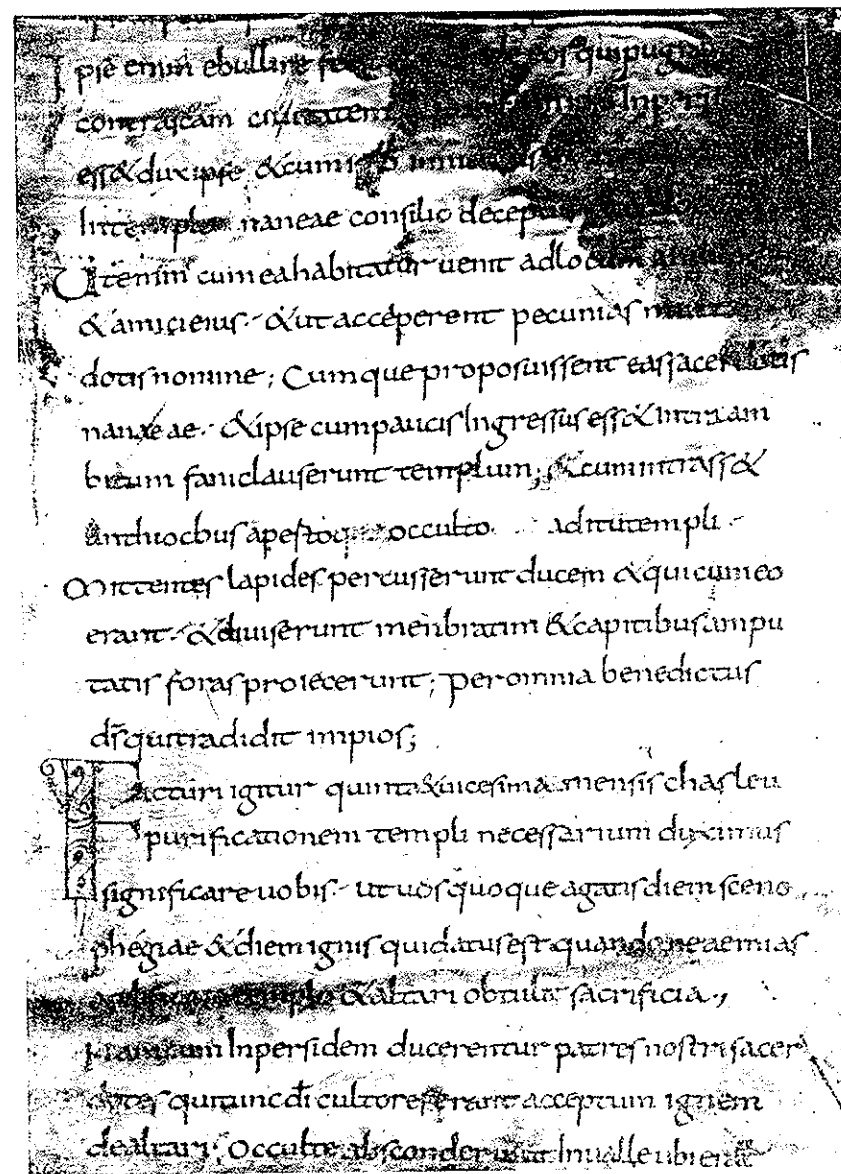 Ipse enim ebullire eos qui pug
contra scam ciuitatem Inper
ess& dux ipse & cum
In templo naneae consilio decept
Et enim cum ea habitatur uenit ad locum
& amici eius · & ut acceperent pecunias
dotis nomine ; Cumque proposuissent eas sacerdotis
naneae · & ipse cum paucis Ingressus ess& Intra am
bitum fani clauserunt templum ; & cum intrass&
anthiocbus aperto occulto aditu templi ·
Mittentes lapides percusserunt ducem & qui cum eo
erant · & diuiserunt menbratim & capitibus ampu
tatis foras proiecerunt ; per omnia benedictus
ds qui tradidit impios ;
Facturi igitur quinta & uicesima mensis chasleu
purificationem templi necessarium duximus
significare uobis · ut uos quoque agatis diem sceno
phegiae & diem ignis qui datus est quando neaemias
templo & altari obtulit sacrificia .,
Nam cum Inpersidem ducerentur patres nostri sacer
dotes qui tunc di cultores erant acceptum ignem
de altari ; Occulte absconderunt In ualle ubi erat